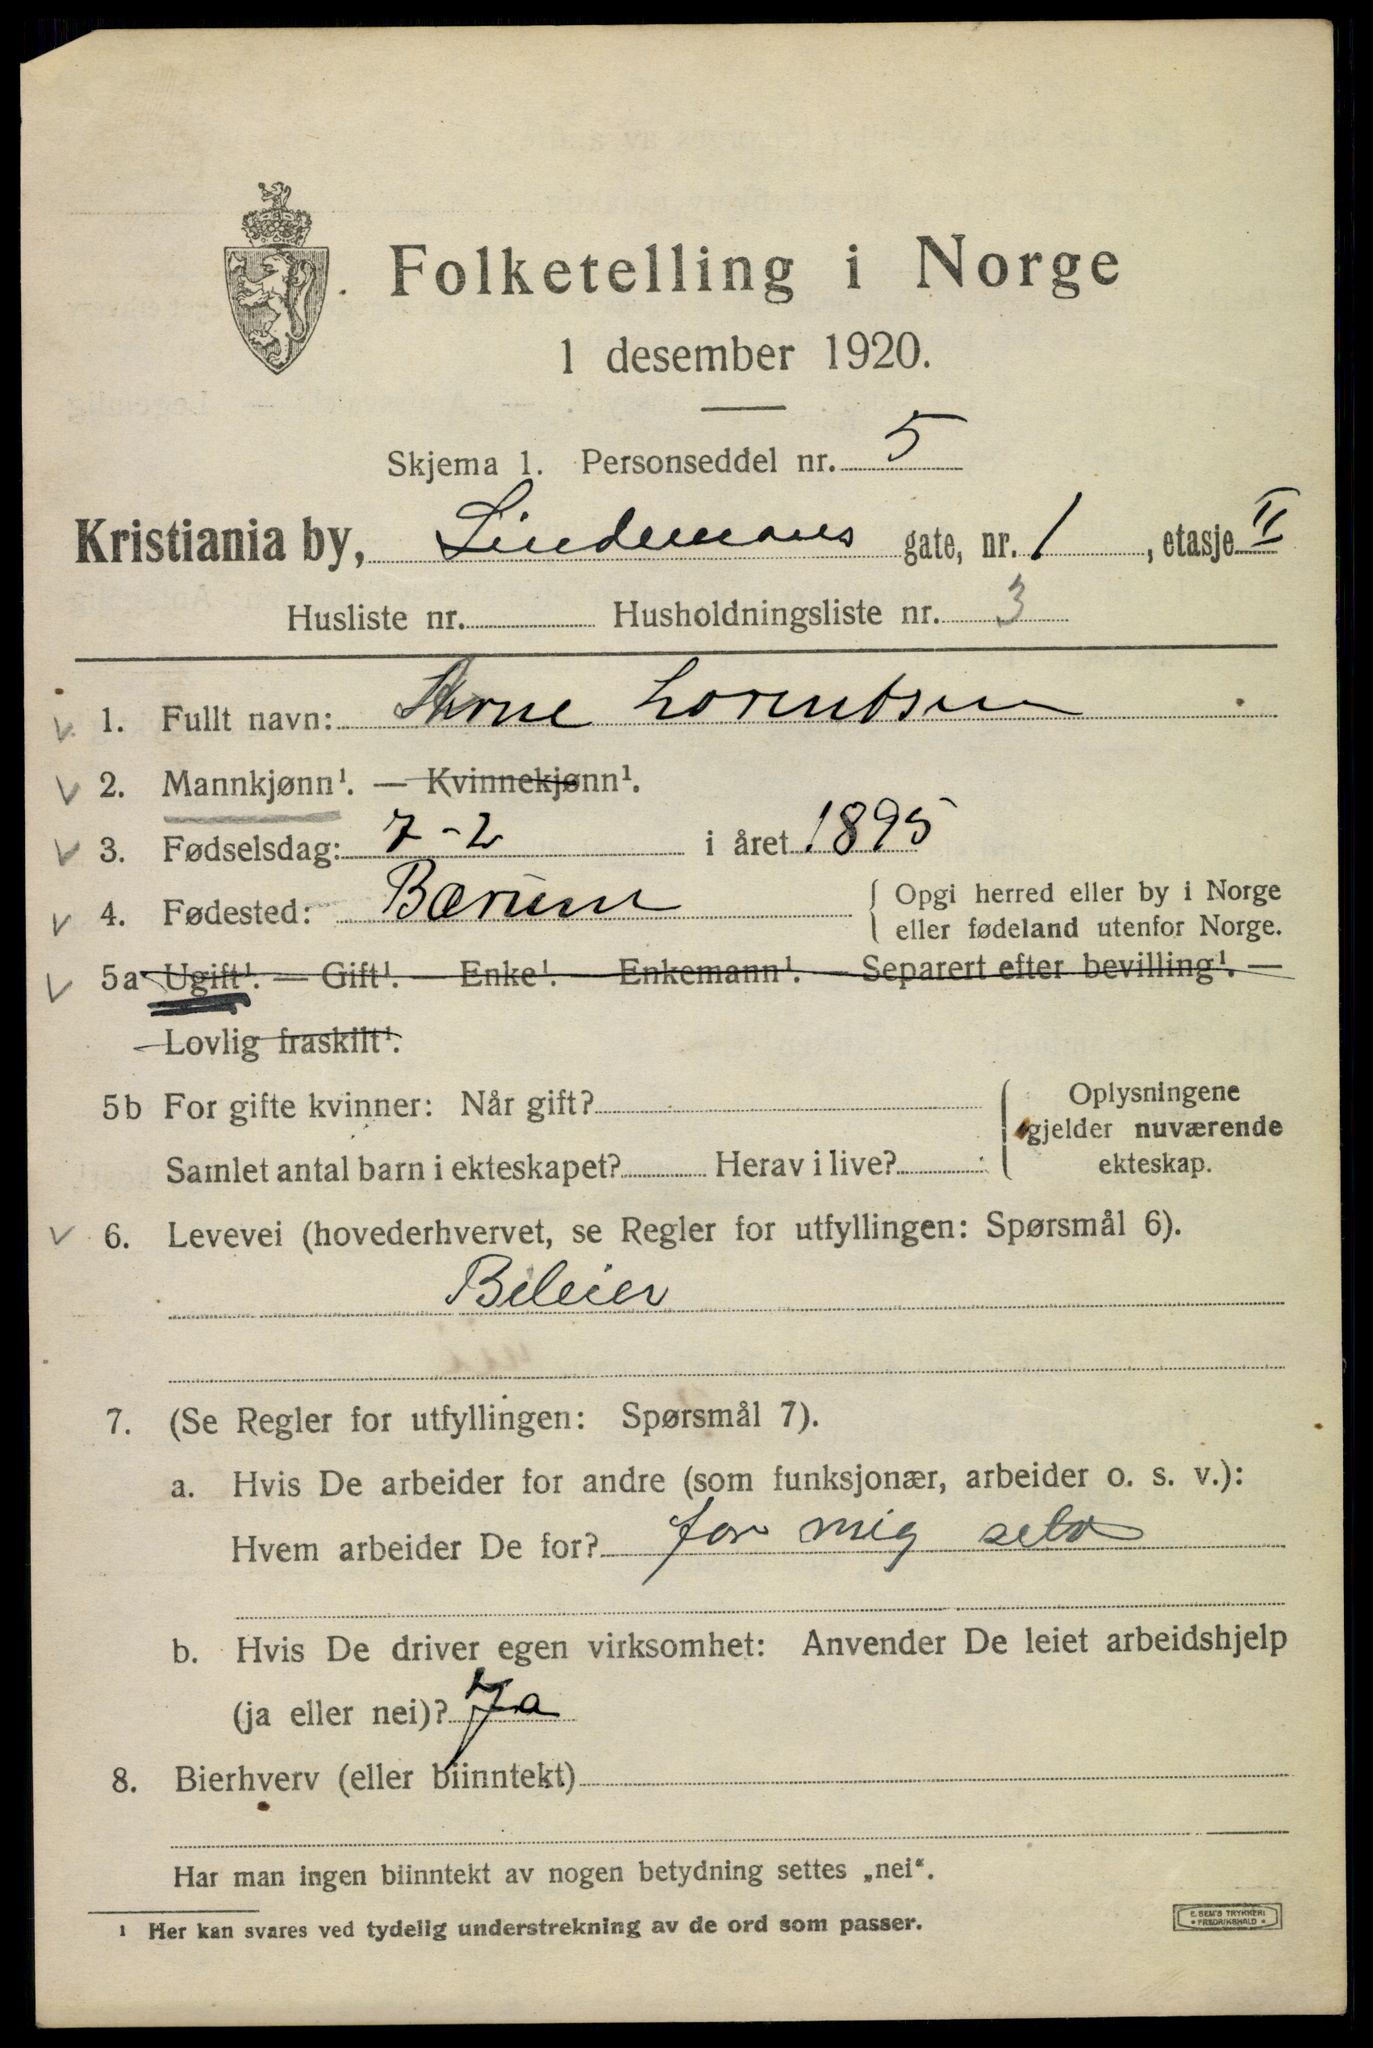 Folketelling i Norge
1 desember 1920.
Skjema 1. Personseddel nr. 5
Kristiania by, Lindemans gate, nr. 1, etasje II
Husliste nr. Husholdningsliste nr. 3
1. Fullt navn: Arne Lorentsen
2. Mannkjønn¹. — Kvinnekjønn¹.
3. Fødselsdag: 7-2 i året 1895
4. Fødested: Bærum { Opgi herred eller by i Norge
eller fødeland utenfor Norge.
5a Ugift¹. — Gift¹. — Enke¹. — Enkemann¹. — Separert efter bevilling¹. —
Lovlig fraskilt¹.
5b For gifte kvinner: Når gift? { Oplysningene
gjelder nuværende
Samlet antal barn i ekteskapet? Herav i live? ekteskap.
6. Levevei (hovederhvervet, se Regler for utfyllingen: Spørsmål 6).
Bileier
7. (Se Regler for utfyllingen: Spørsmål 7).
a. Hvis De arbeider for andre (som funksjonær, arbeider o. s. v.):
Hvem arbeider De for? for mig selv
b. Hvis De driver egen virksomhet: Anvender De leiet arbeidshjelp
(ja eller nei)? Ja
8. Bierhverv (eller biinntekt)
Har man ingen biinntekt av nogen betydning settes „nei“.
¹ Her kan svares ved tydelig understrekning av de ord som passer.
E. SEM'S TRYKKERI
• FREDRIKSHALD •